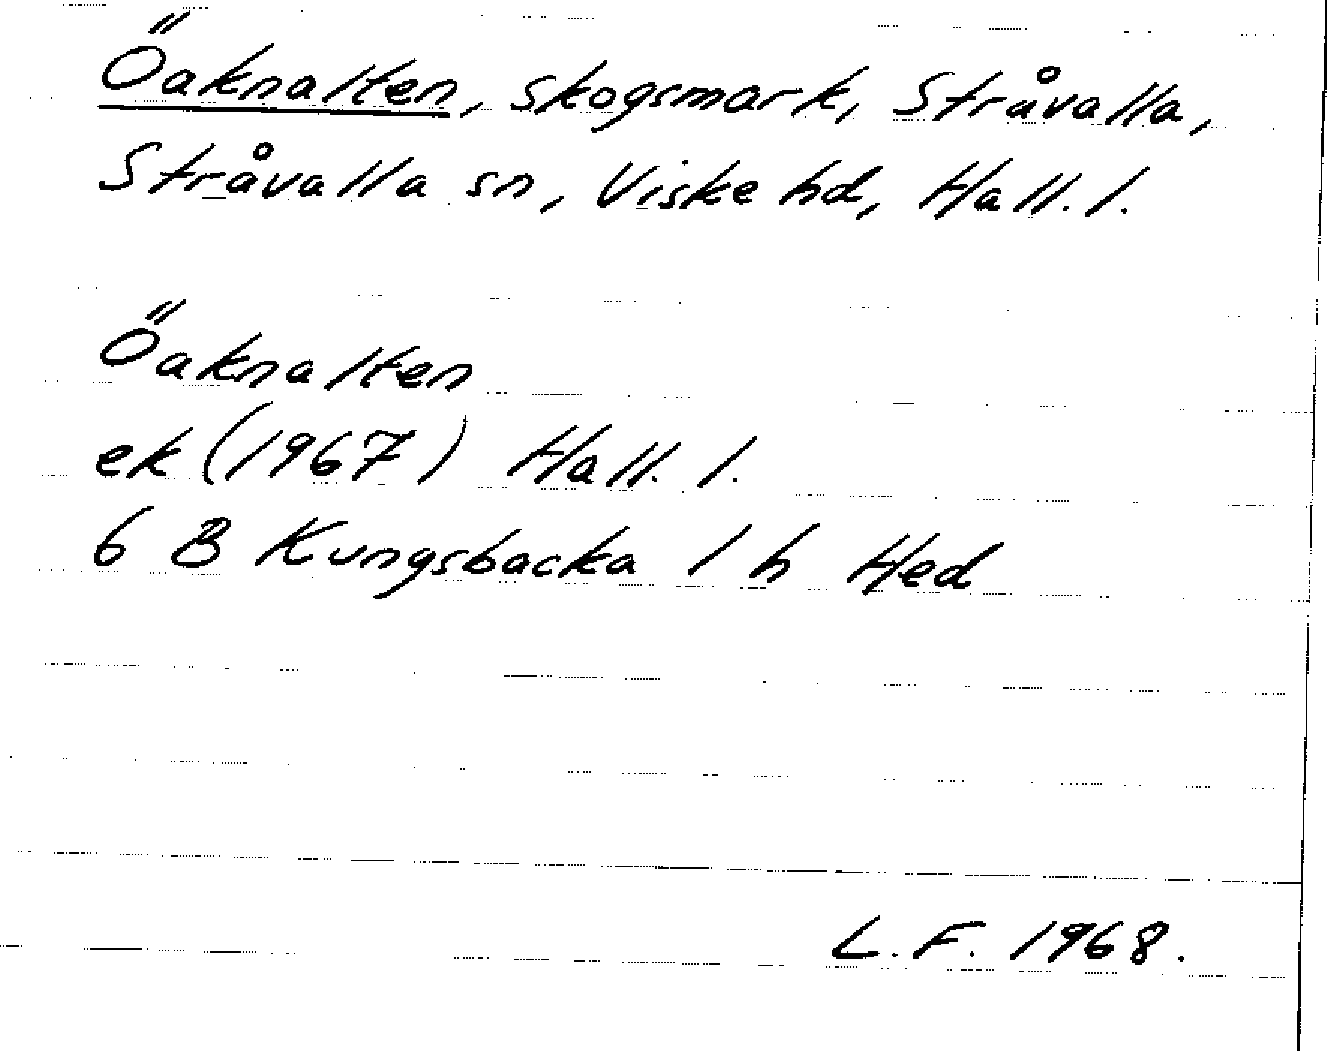 Öaknalten, skogsmark, Stråvalla,
Stråvalla sn, Viske hd, Hall. l.
Öaknalten
ek (1967) Hall. l.
6 B Kungsbacka 1 h Hed
L.F. 1968.